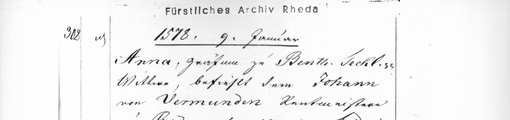 Fürstliches Archiv Rheda
302
1578. 9. Januar
Anna, gräfin zu Benth. Teckl. &c
Wittwe, befiehlt dem Johann
von Vermunden Rentmeistere